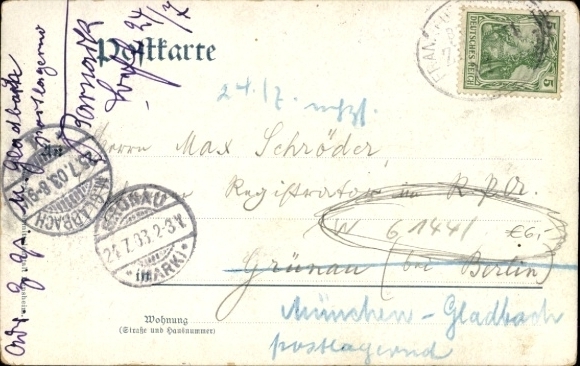 Postkarte
24./7.
Herrn Max Schröder,
Registrator im R.P.A.
W 6 1441 €6,-
Grünau (bei Berlin)
München-Gladbach
postlagernd
Wohnung
(Straße und Hausnummer)
GRÜNAU
24.7.03. 2-3 N.
*(MARK)*
M.GLADBACH
.7.03. 8-9
DEUTSCHES REICH
5
5
M. Gladbach
postlagernd
24/7